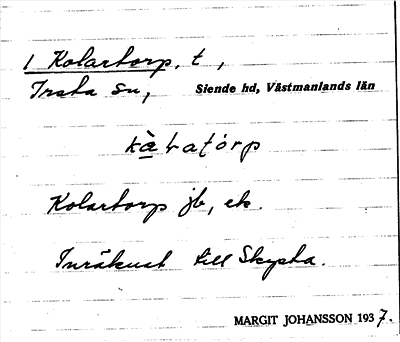 1 Kolartorp, t,
Irsta sn, Siende hd, Västmanlands län
Kolartorp jb, ek.
Inräknat till Skysta.
MARGIT JOHANSSON 1937.